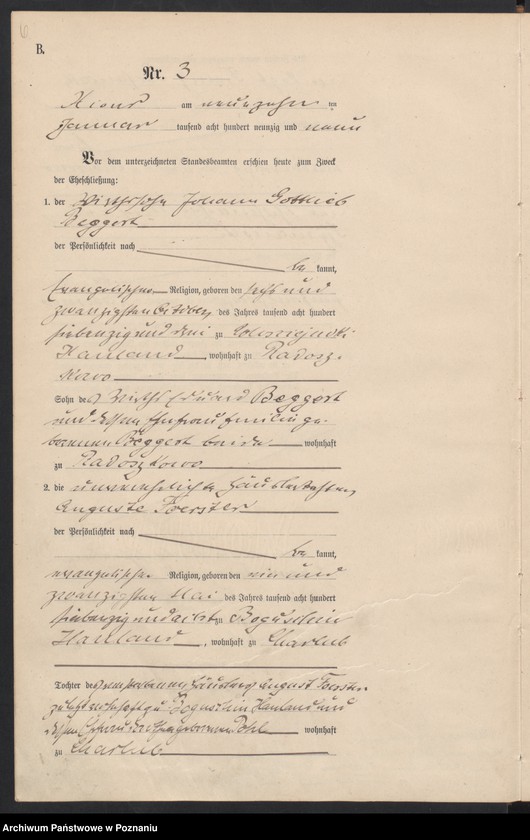 B.
Nr. 3
Xions am neunzehn ten
Januar tausend acht hundert neunzig und neun
Vor dem unterzeichneten Standesbeamten erschien heute zum Zweck
der Eheschließung:
1. der Wirthssohn Johann Gottlieb
Beggert
der Persönlichkeit nach
be kannt,
evangelischer Religion, geboren den sechs und
zwanzigsten October des Jahres tausend acht hundert
siebenzig und drei zu
Hauland, wohnhaft zu Radosz-
kowo
Sohn des Wirths Eduard Beggert
und dessen Ehefrau Emilie ge-
borenen Beggert beide wohnhaft
zu Radoszkowo
2. die unverehelichte Häuslertochter
Auguste Foerster
der Persönlichkeit nach
be kannt,
evangelischer Religion, geboren den ein und
zwanzigsten Mai des Jahres tausend acht hundert
siebenzig und acht zu Boguschin
Hauland, wohnhaft zu Charlub
Tochter des verstorbenen Häuslers August Foerster
zuletzt wohnhaft zu Boguschin Hauland und
dessen Ehefrau geborenen Pohl wohnhaft
zu Charlub
Archiwum Państwowe w Poznaniu